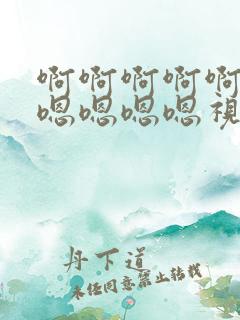 啊啊啊啊啊
嗯嗯嗯嗯視
丹下道
未任同意禁止转载